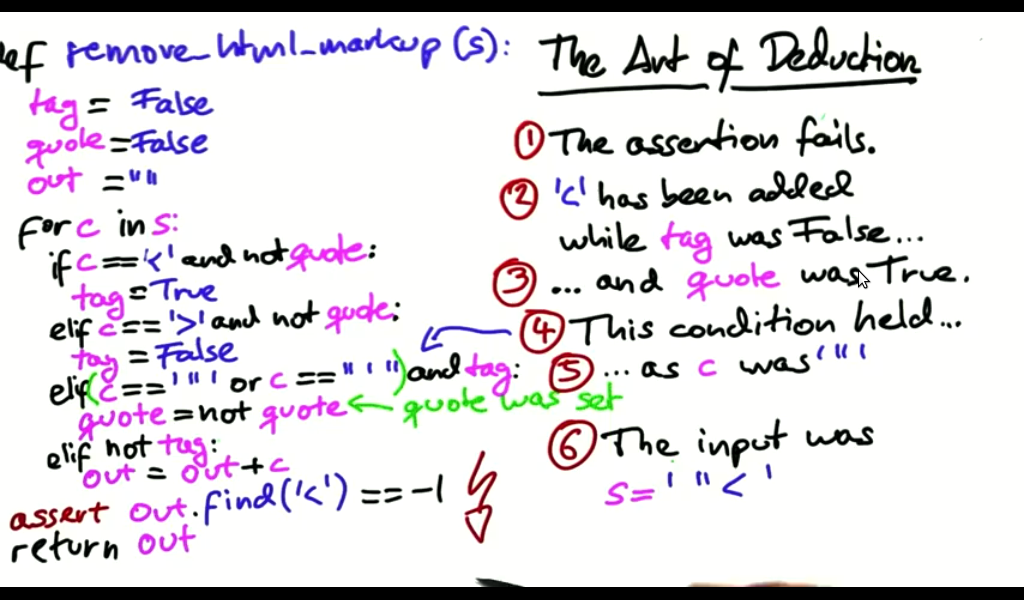 ef remove_html_markup (s):
tag = False
quote = False
out = ""
for c in s:
if c == '<' and not quote:
tag = True
elif c == '>' and not quote:
tag = False
elif (c == '"' or c == "'") and tag:
quote = not quote ← quote was set
elif not tag:
out = out + c
assert out.find('<') == -1
return out
The Art of Deduction
① The assertion fails.
② '<' has been added
while tag was False...
③ ... and quote was True.
④ This condition held...
⑤ ... as c was '"'
⑥ The input was
s = '"<'